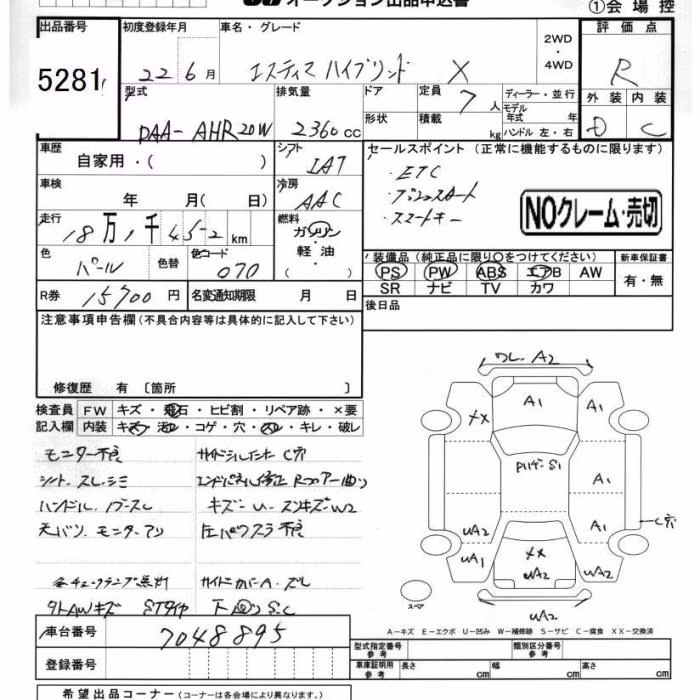 オークション出品申込書
①会場控
出品番号
初度登録年月
車名・グレード
評価点
5281
22 6月
エスティマ ハイブリッド X
2WD
・
4WD
R
型式
排気量
ドア
定員
ディーラー・並行
外装
内装
DAA-AHR20W
2360cc
7人
モデル
年式 年
形状
積載
kg
ハンドル 左・右
D
C
車歴
自家用・( )
シフト
IAT
セールスポイント (正常に機能するものに限ります)
・ETC
・プッシュスタート
・スマートキー
NOクレーム・売切
車検
年 月( 日)
冷房
AAC
走行
18万1千452km
燃料
ガソリン
軽油
色
パール
色替
色コード
070
装備品 (純正品に限り○をつけてください)
新車保証書
PS PW ABS エアB AW
SR ナビ TV カワ
有・無
R券
15700円
名変通知期限
月 日
後日品
注意事項申告欄 (不具合内容等は具体的に記入して下さい)
修復歴 有 〔箇所 〕
検査員
記入欄
FW
キズ・飛石・ヒビ割・リペア跡・×要
内装
キズ・汚レ・コゲ・穴・スレ・キレ・破レ
モニター不良
サイドシルインナーC穴
シート スレ シミ
エンドパネル修正 Rフロアー曲り
ハンドル
キズ・U・スリキズ・W2
天バリ モニターアリ
左パワスラ不良
各チェックランプ点灯
サイドカバーA・ズレ
タトAWキズ STタイヤ
下回り S.C
ワレ・A2
A1
A1
XX
A1
A1
C穴
UA2
UA1
XX
UA2
UA2
UA2
スペア
A-キズ E-エクボ U-凹み W-補修跡 S-サビ C-腐食 XX-交換済
車台番号
7048895
型式指定番号
参考
類別区分番号
参考
登録番号
車庫証明用
参考
長さ cm
幅 cm
高さ cm
希望出品コーナー (コーナーは各会場により異なります。)